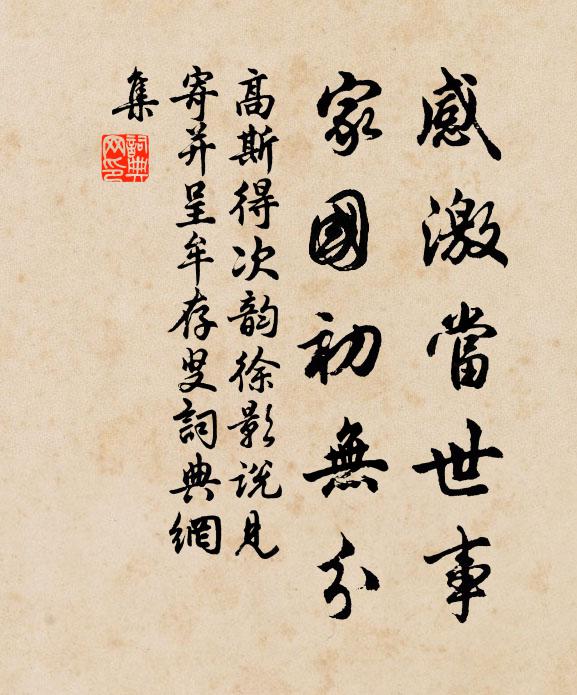 感激當世事
家國初無分
高斯得次韵徐影說見
寄并呈牟存叟詞典網
集
詞典网印